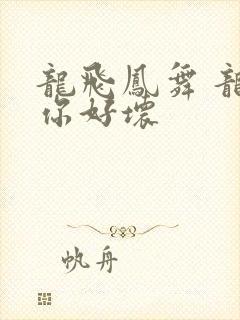 龍飛鳳舞 龍
你好壞
帆舟